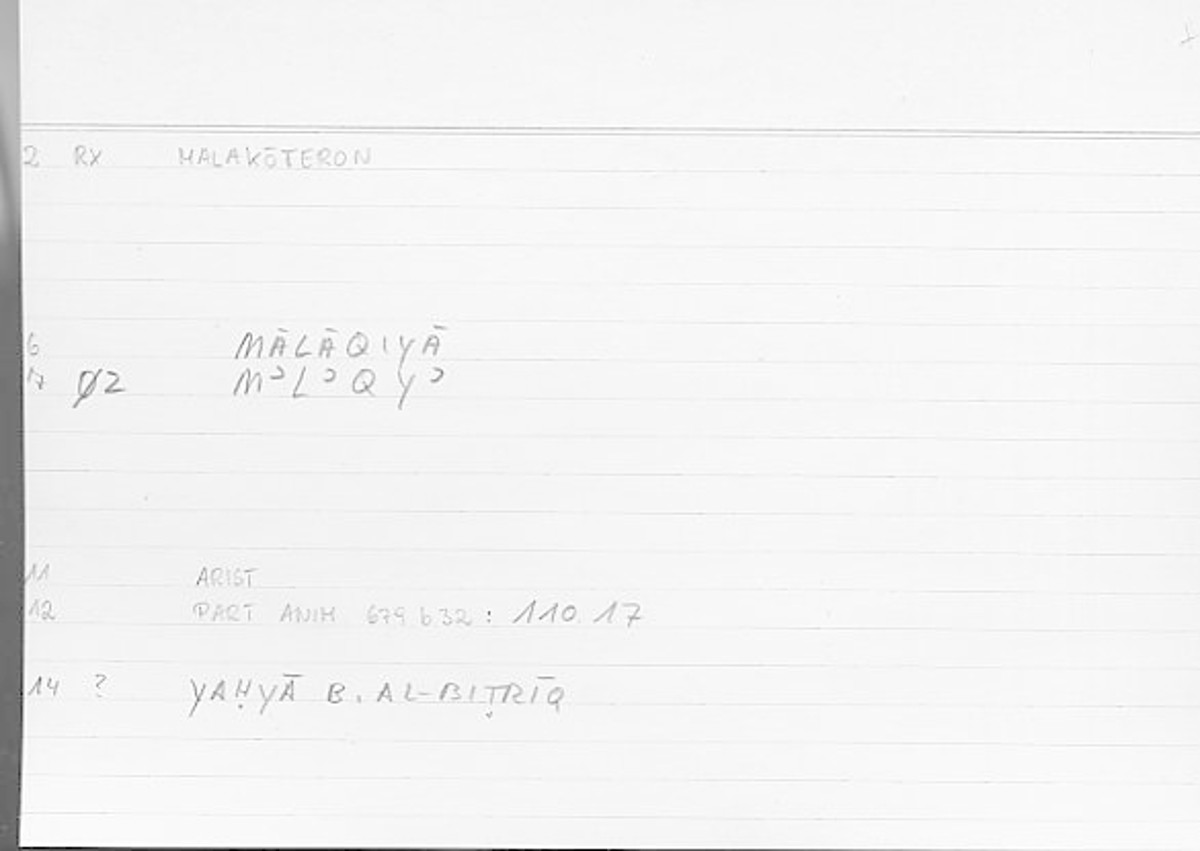 2 RX MALAKŌTERON
6 MĀLĀQIYĀ
7 Ø2 MʾLʾQYʾ
11 ARIST
12 PART ANIM 679 b 32 : 110. 17
14 ? YAḤYĀ B. AL-BIṬRĪQ